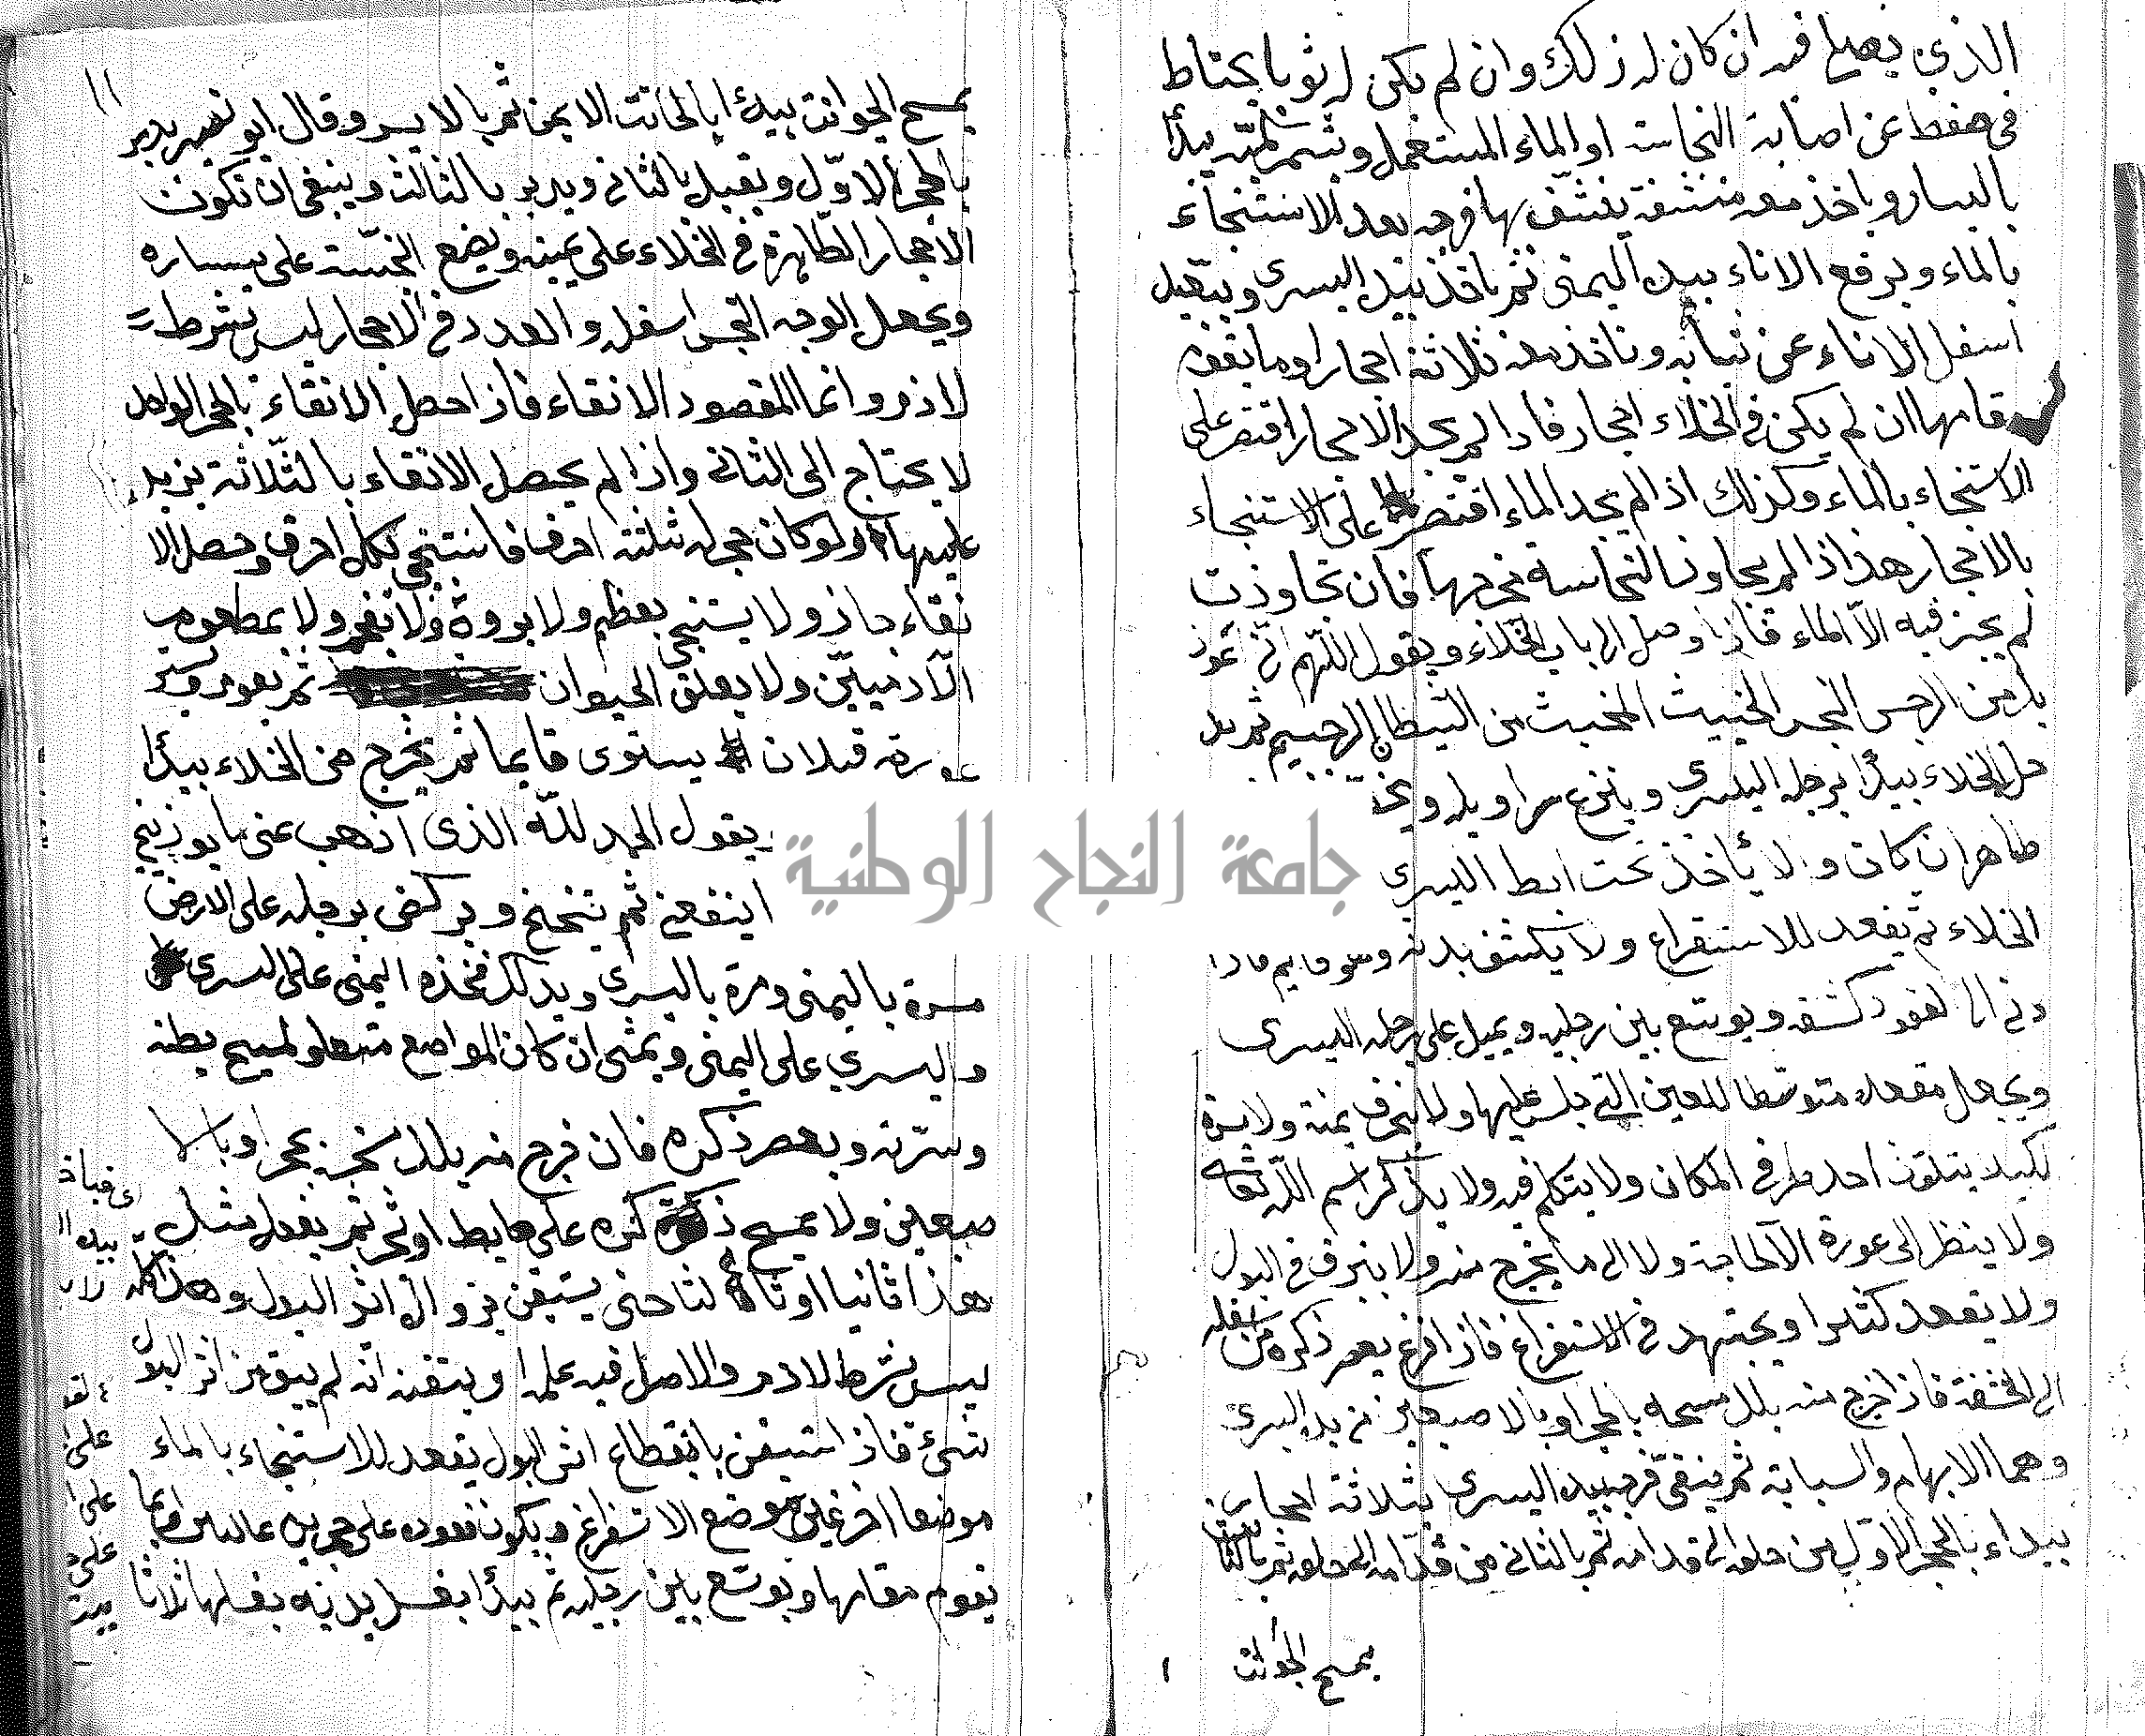 الذي يصلي فيه ان كان له ذلك وان لم يكن له ثوبا يحتاط
في حفظ عن اصابة النجاسة او الماء المستعمل ويشمر كميه يبدأ
باليسار وياخذ معه منشفة ينشف بها فرجه بعد الاستنجاء
بالماء ويرفع الاناء بيده اليمنى ثم ياخذ بيد اليسرى
اسفل الاناء عن ثيابه وياخذ معه ثلاثة احجار او ما يقوم
مقامها ان لم يكن في الخلاء احجار فاذا لم يجد الاحجار اقتصر على
الاستنجاء بالماء وكذلك اذا لم يجد الماء اقتصر على الاستنجاء
بالاحجار هذا اذا لم يجاوز النجاسة مخرجها فان تجاوزت
لم يجز فيه الا الماء فاذا وصل الى باب الخلاء ويقول اللهم اني اعوذ
بك من الرجس النجس الخبيث المخبث من الشيطان الرجيم ثم يد
خل الخلاء يبدأ برجله اليسرى وينزع سراويله
طاهرا ان كان والا يأخذ تحت ابط اليسرى
الخلاء ثم يقعد للاستفراغ ولا يكشف بدنه وهو قايم فاذا
دنى الى القعود كشفه ويوسع بين رجليه ويميل على رجله اليسرى
ويجعل مقعده متوسطا للعين التي جلس عليها ولا ينحرف يمنة ولا يسرة
لكيلا يتلوث احد طرفي المكان ولا يتكلم فيه ولا يذكر اسم الله تعالى
ولا ينظر الى عورة الا لحاجة ولا الى ما يخرج منه ولا يبزق في البول
ولا يقعد كثيرا ويجتهد في الاستفراغ فاذا فرغ يعصر ذكره من اسفله
الى الحشفة فاذا خرج منه بلل مسحه بالحجر او بالاصبعين من يد اليسرى
وهما الابهام والسبابة ثم ينقي فرجه بيده اليسرى بثلاثة احجار
يبداء بالحجر الاول من خلفه الى قدامه ثم بالثاني من قدامه الى خلفه ثم بالثالث
يمسح الجوانب
١١
يمسح الجوانب يبدأ بالجانب الايمن ثم بالايسر وقال ابو نصر يدبر
بالحجر الاول ويقبل بالثاني ويدبر بالثالث وينبغي ان تكون
الاحجار الطاهرة في الخلاء على يمينه ويضع النجسة على يساره
ويجعل الوجه النجس اسفله والعدد في الاحجار ليس بشرط
لازم وانما المقصود الانقاء فاذا حصل الانقاء بالحجر الواحد
لا يحتاج الى الثاني واذا لم يحصل الانقاء بالثلاثة يزيد
عليها ولو كان حجر له ثلثة احرف فاستنجى بكل احرف وحصل الا
نقاء جاز ولا يستنجي بعظم ولا بروث ولا بفحم ولا بمطعوم
الآدميين ولا بعلف الحيوان ثم يقوم ويستر
عورته قبل ان يستوى قايما ثم يخرج من الخلاء يبدأ
يقول الحمد لله الذى اذهب عنى ما يوذيني
ا ينفعني ثم يتنحنح ويركض برجله على الارض
مرة باليمنى ومرة باليسرى ويدلك فخذه اليمنى على اليسرى
واليسرى على اليمنى ويمشى ان كان المواضع متسعا ويمسح بطنه
وسرته ويعصر ذكره فان خرج منه بلل مسحه بحجر او بالا
صبعين ولا يمسح ذكره على حايط او شجر ثم يفعل مثل
هذا ثانيا او ثالثا حتى يستيقن بزوال اثر البول وهذا كله
ليس بشرط لازم والاصل فيه علمه ويتقنه انه لم يبق من اثر البول
شىء فاذا استيقن بانقطاع اثر البول يقعد للاستنجاء بالماء
موضعا اخر غير موضع الاستفراغ ويكون قعوده على حجرين عاليين او بما
يقوم مقامها ويوسع بين رجليه ثم يبدأ بغسل يديه يغسلها ثلاثا
على
على
جامعة النجاح الوطنية